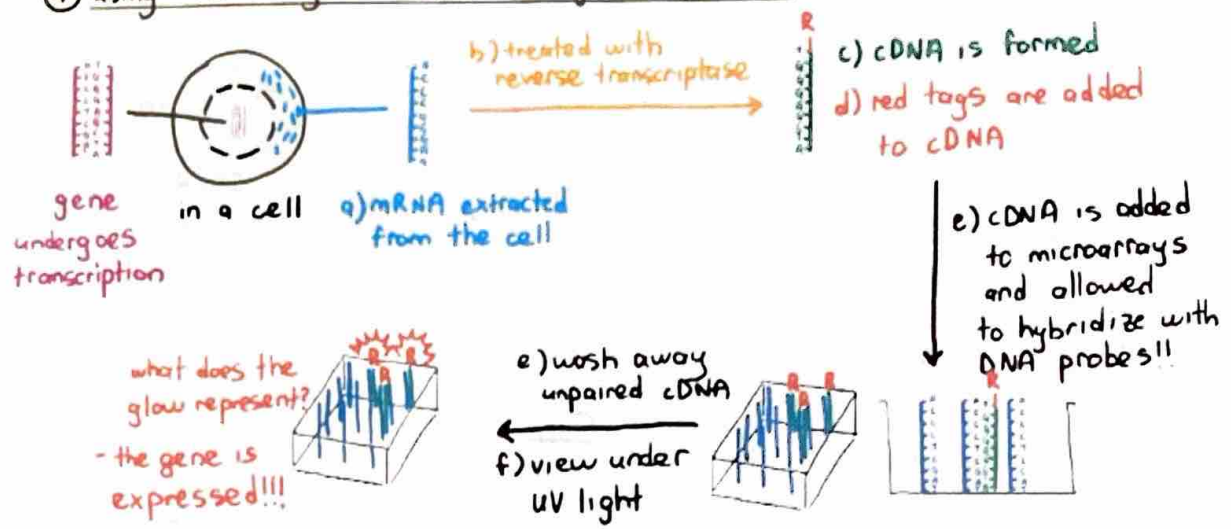 using
gene
undergoes
transcription
in a cell
a) mRNA extracted
from the cell
b) treated with
reverse transcriptase
R
c) cDNA is formed
d) red tags are added
to cDNA
e) cDNA is added
to microarrays
and allowed
to hybridize with
DNA probes!!
R
R R
R
e) wash away
unpaired cDNA
f) view under
UV light
R R
R
what does the
glow represent?
- the gene is
expressed!!!